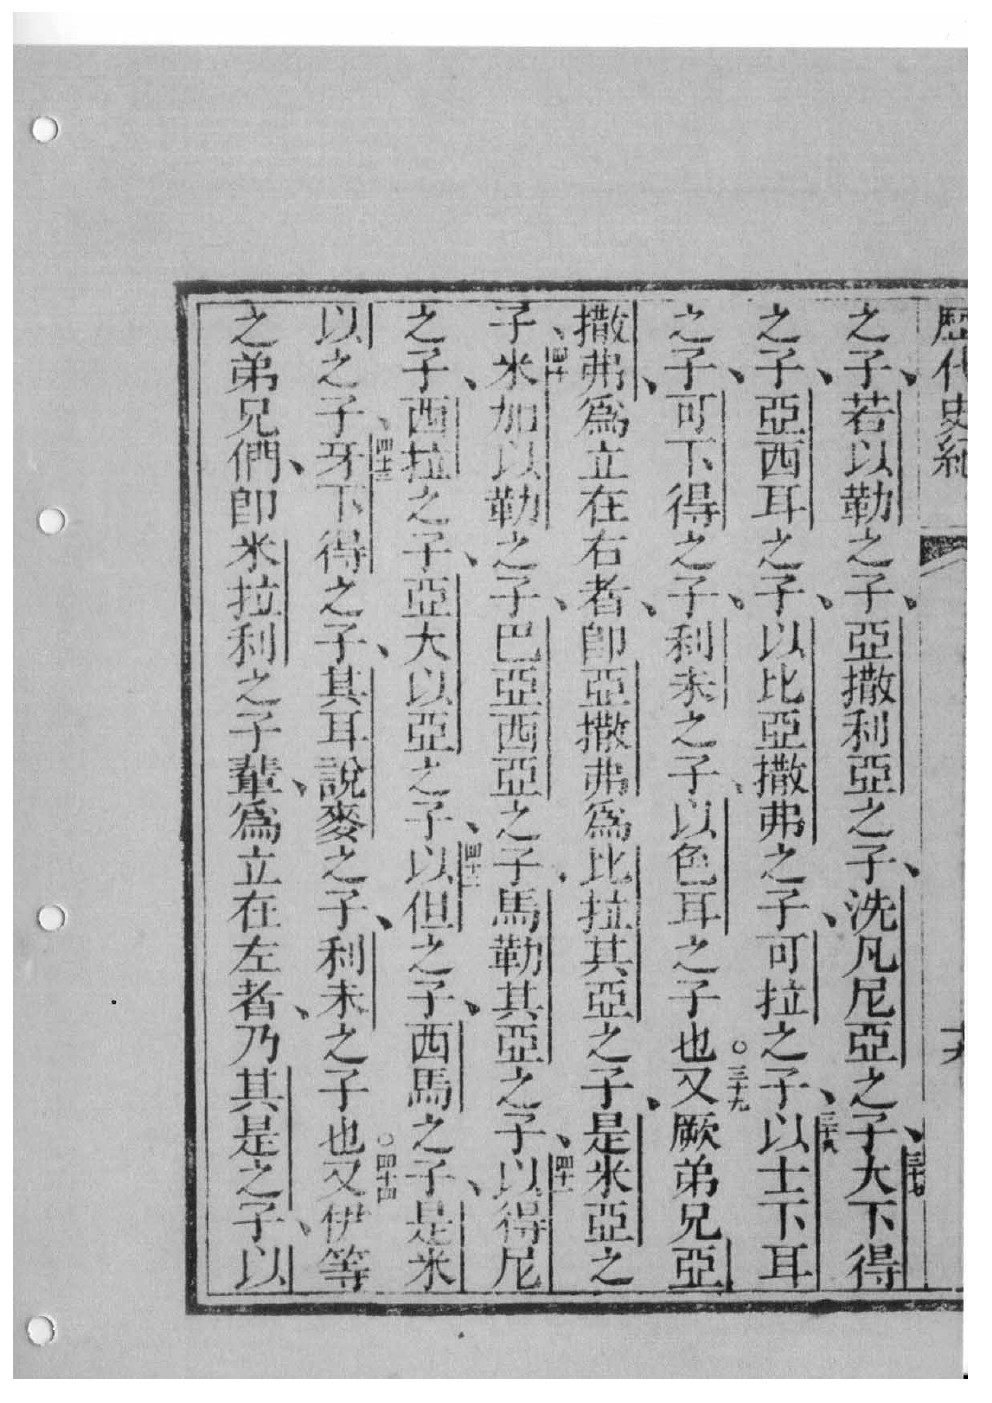 歷代史紀
之子、若以勒之子、亞撒利亞之子、洗凡尼亞之子、三十七大下得
之子、亞西耳之子、以比亞撒弗之子、可拉之子、三十八以士下耳
之子、可下得之子、利未之子、以色耳之子也○三十九又厥弟兄亞
撒弗、爲立在右者、即亞撒弗爲比拉其亞之子、是米亞之
子、四十米加以勒之子、巴亞西亞之子、馬勒其亞之子、四十一以得尼
之子、西拉之子、亞大以亞之子、四十二以但之子、西馬之子、是米
以之子、四十三牙下得之子、其耳說麥之子、利未之子也○四十四又伊等
之弟兄們、即米拉利之子輩、爲立在左者、乃其是之子、以